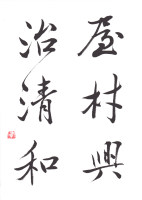 屋村興
治清和